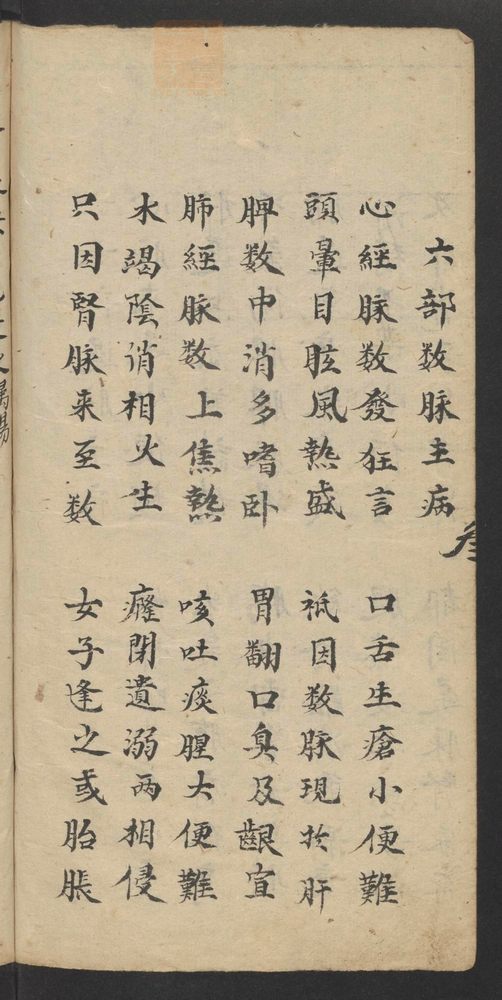 六部数脉主病
心經脉数發狂言　口舌生瘡小便難
頭暈目眩風熱盛　祇因数脉現於肝
脾数中消多嗜卧　胃翻口臭及齦宣
肺經脉数上焦熱　咳吐痰腥大便難
水竭陰消相火生　癃閉遺溺两相侵
只因腎脉来至数　女子逢之或胎脹